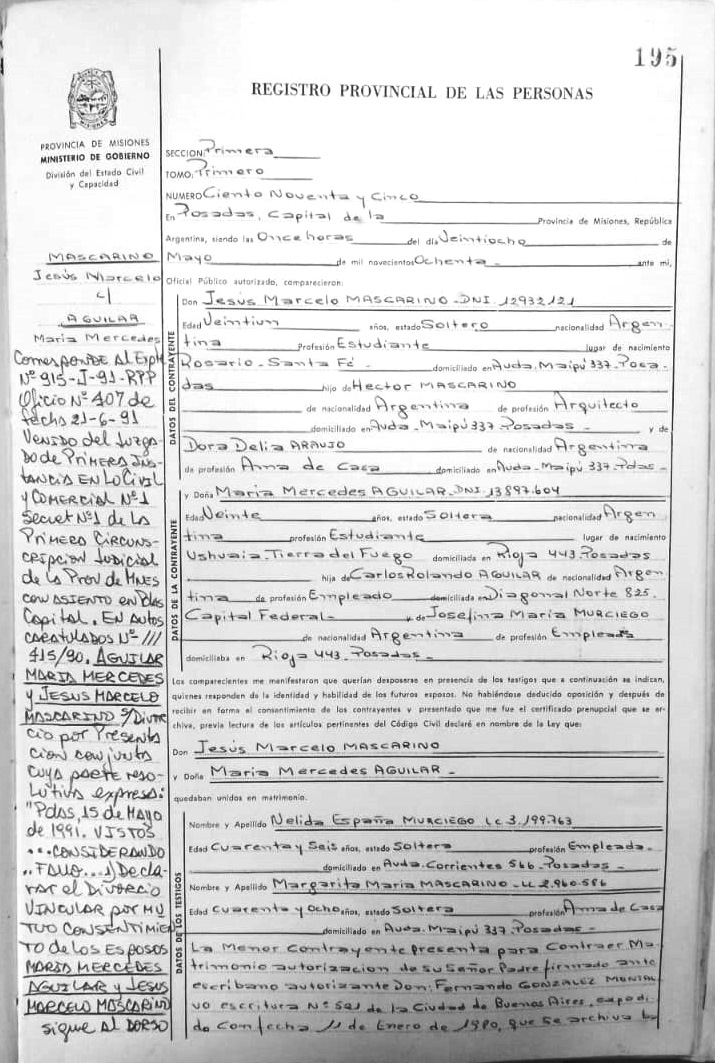 195
REGISTRO PROVINCIAL DE LAS PERSONAS
PROVINCIA DE MISIONES
MINISTERIO DE GOBIERNO
División del Estado Civil
y Capacidad
MASCARINO
Jesús Marcelo
c/
AGUILAR
Maria Mercedes
Corresponde Al Expte
Nº 915-J-91-RPP
Oficio Nº 407 de
fecha 21-6-91
Venido del Juzga-
do de Primera Ins-
tancia en lo Civil
y Comercial Nº1
Secret Nº1 de la
Primera Circuns-
cripcion Judicial
de la Prov de Mnes
con asiento en Pdas
Capital. En Autos
caratulados Nº ///
415/90. AGUILAR
MARIA MERCEDES
y JESUS MARCELO
MASCARINO s/Divor
cio por Presenta
cion conjunta
cuya parte reso-
lutiva expresa:
"Pdas, 15 de Mayo
de 1991. VISTOS
...CONSIDERANDO
..FALLO...1) Decla-
rar el Divorcio
Vincular por Mu
tuo consentimien
to de los Esposos
MARIA MERCEDES
AGUILAR y JESUS
MARCELO MASCARINO
sigue al DORSO
SECCION: Primera
TOMO: Primero
NUMERO Ciento Noventa y Cinco
En Posadas, Capital de la Provincia de Misiones, República
Argentina, siendo las Once horas del día Veintiocho de
Mayo de mil novecientos Ochenta - ante mi,
Oficial Público autorizado, comparecieron:
DATOS DEL CONTRAYENTE
Don Jesús Marcelo MASCARINO - DNI. 12932121
Edad Veintiun años, estado Soltero nacionalidad Argen-
tina Profesión Estudiante lugar de nacimiento
Rosario - Santa Fé - domiciliado en Avda. Maipú 337 - Posa-
das hijo de Hector MASCARINO
de nacionalidad Argentina de profesión Arquitecto
domiciliado en Avda. Maipú 337. Posadas - y de
Dora Delia ARAUJO de nacionalidad Argentina
de profesión Ama de Casa domiciliado en Avda. Maipú 337. Pdas -
DATOS DE LA CONTRAYENTE
y Doña Maria Mercedes AGUILAR - DNI. 13897.604
Edad Veinte años, estado Soltera nacionalidad Argen
tina profesión Estudiante lugar de nacimiento
Ushuaia - Tierra del Fuego domiciliada en Rioja 443. Posadas
hija de Carlos Rolando AGUILAR de nacionalidad Argen
tina de profesión Empleado domiciliado en Diagonal Norte 825.
Capital Federal - y de Josefina Maria MURCIEGO
de nacionalidad Argentina de profesión Empleada
domiciliaba en Rioja 443. Posadas -
Los comparecientes me manifestaron que querían desposarse en presencia de los testigos que a continuación se indican,
quienes responden de la identidad y habilidad de los futuros esposos. No habiéndose deducido oposición y después de
recibir en forma el consentimiento de los contrayentes y presentado que me fue el certificado prenupcial que se ar-
chiva, previa lectura de los artículos pertinentes del Código Civil declaré en nombre de la Ley que:
Don Jesús Marcelo MASCARINO
y Doña Maria Mercedes AGUILAR -
quedaban unidos en matrimonio.
DATOS DE LOS TESTIGOS
Nombre y Apellido Nelida España MURCIEGO LC 3.199.763
Edad Cuarenta y Seis años, estado Soltera profesión Empleada -
domiciliado en Avda. Corrientes 566 - Posadas -
Nombre y Apellido Margarita Maria MASCARINO - LC 2.960.586
Edad Cuarenta y Ocho años, estado Soltera profesión Ama de Casa
domiciliado en Avda. Maipú 337. Posadas -
La Menor Contrayente presenta para Contraer Ma-
trimonio autorizacion de su Señor Padre firmado ante
escribano autorizante Don: Fernando GONZALEZ MONTAL
vo escritura Nº 521 de la Ciudad de Buenos Aires, expedi-
do con fecha 11 de Enero de 1980, que se archiva